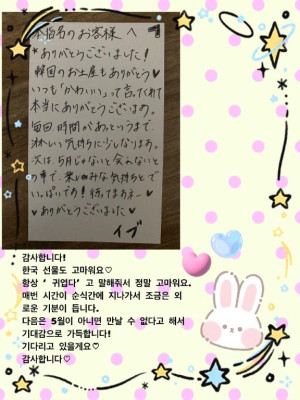 本指名のお客様へ
ありがとうございました!
韓国のお土産もありがとう♥
いつも「かわいい」って言ってくれて
本当にありがとうございます。
毎回時間があっというまで、
淋しい気持ちに少しなります。
次は、5月じゃないと会えないと
の事で、楽しみな気持ちで
いっぱいです!待ってまあす
♥ありがとうございました♥
イブ
감사합니다!
한국 선물도 고마워요♡
항상 ‘ 귀엽다’ 고 말해줘서 정말 고마워요.
매번 시간이 순식간에 지나가서 조금은 외
로운 기분이 듭니다.
다음은 5월이 아니면 만날 수 없다고 해서
기대감으로 가득합니다!
기다리고 있을게요♡
감사합니다♡